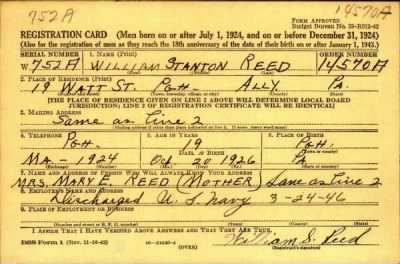 752A
14570A
FORM APPROVED
Budget Bureau No. 33-R012-42
REGISTRATION CARD (Men born on or after July 1, 1924, and on or before December 31, 1924)
(Also for the registration of men as they reach the 18th anniversary of the date of their birth on or after January 1, 1943.)
SERIAL NUMBER 1. NAME (Print) ORDER NUMBER
W 752A WILLIAM STANTON REED 14570A
2. PLACE OF RESIDENCE (Print)
19 WATT ST. PGH. ALLY. PA.
(Number and street) (Town, township, village, or city) (County) (State)
[THE PLACE OF RESIDENCE GIVEN ON LINE 2 ABOVE WILL DETERMINE LOCAL BOARD
JURISDICTION; LINE 2 OF REGISTRATION CERTIFICATE WILL BE IDENTICAL]
3. MAILING ADDRESS
Same as line 2
4. TELEPHONE 5. AGE IN YEARS 6. PLACE OF BIRTH
PGH. 19 PGH.
DATE OF BIRTH
MA- 1924 Oct. 20 1926 PA
7. NAME AND ADDRESS OF PERSON WHO WILL ALWAYS KNOW YOUR ADDRESS
MRS. MARY E. REED (MOTHER) Same as line 2
8. EMPLOYER'S NAME AND ADDRESS
Discharged U. S. Navy 3-24-46
9. PLACE OF EMPLOYMENT OR BUSINESS
I AFFIRM THAT I HAVE VERIFIED ABOVE ANSWERS AND THAT THEY ARE TRUE.
DSS Form 1 (Rev. 11-16-42) (OVER) William S. Reed